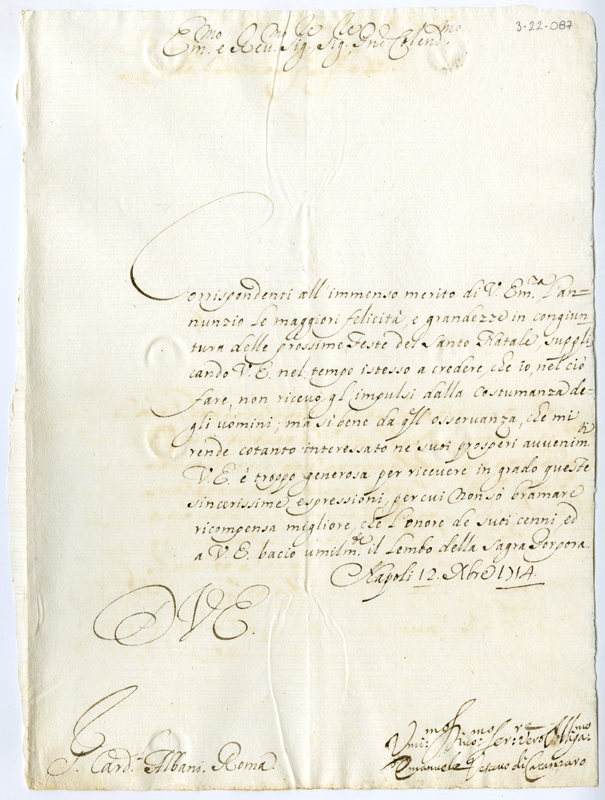 3-22-087
Em.mo e Rev.mo Sig.re Sig.re Pne Colend.mo
Corrispondenti all'immenso merito di V. Em.za l'an=
nunzio le maggiori felicità, e grandezze in congiun=
tura delle prossime Feste del Santo Natale, suppli
cando V.E. nel tempo istesso a credere, che io, nel ciò
fare, non ricevo gl'impulsi dalla Costumanza de=
gli uomini; ma si bene da qll'osservanza, che mi
rende cotanto interessato ne' suoi prosperi avvenim.ti
V.E. è troppo generosa per ricevere in grado queste
sincerissime espressioni, per cui non sò bramare
ricompensa migliore, che l'onore de suoi cenni, ed
a V.E. bacio umilm.te il lembo della Sagra Porpora.
Napoli 12. Xbre 1714.
D V E.
S. Card.l Albani. Roma.
Umi.mo Ser.re vero Obblig.mo
Emanuele Vescovo di Catanzaro